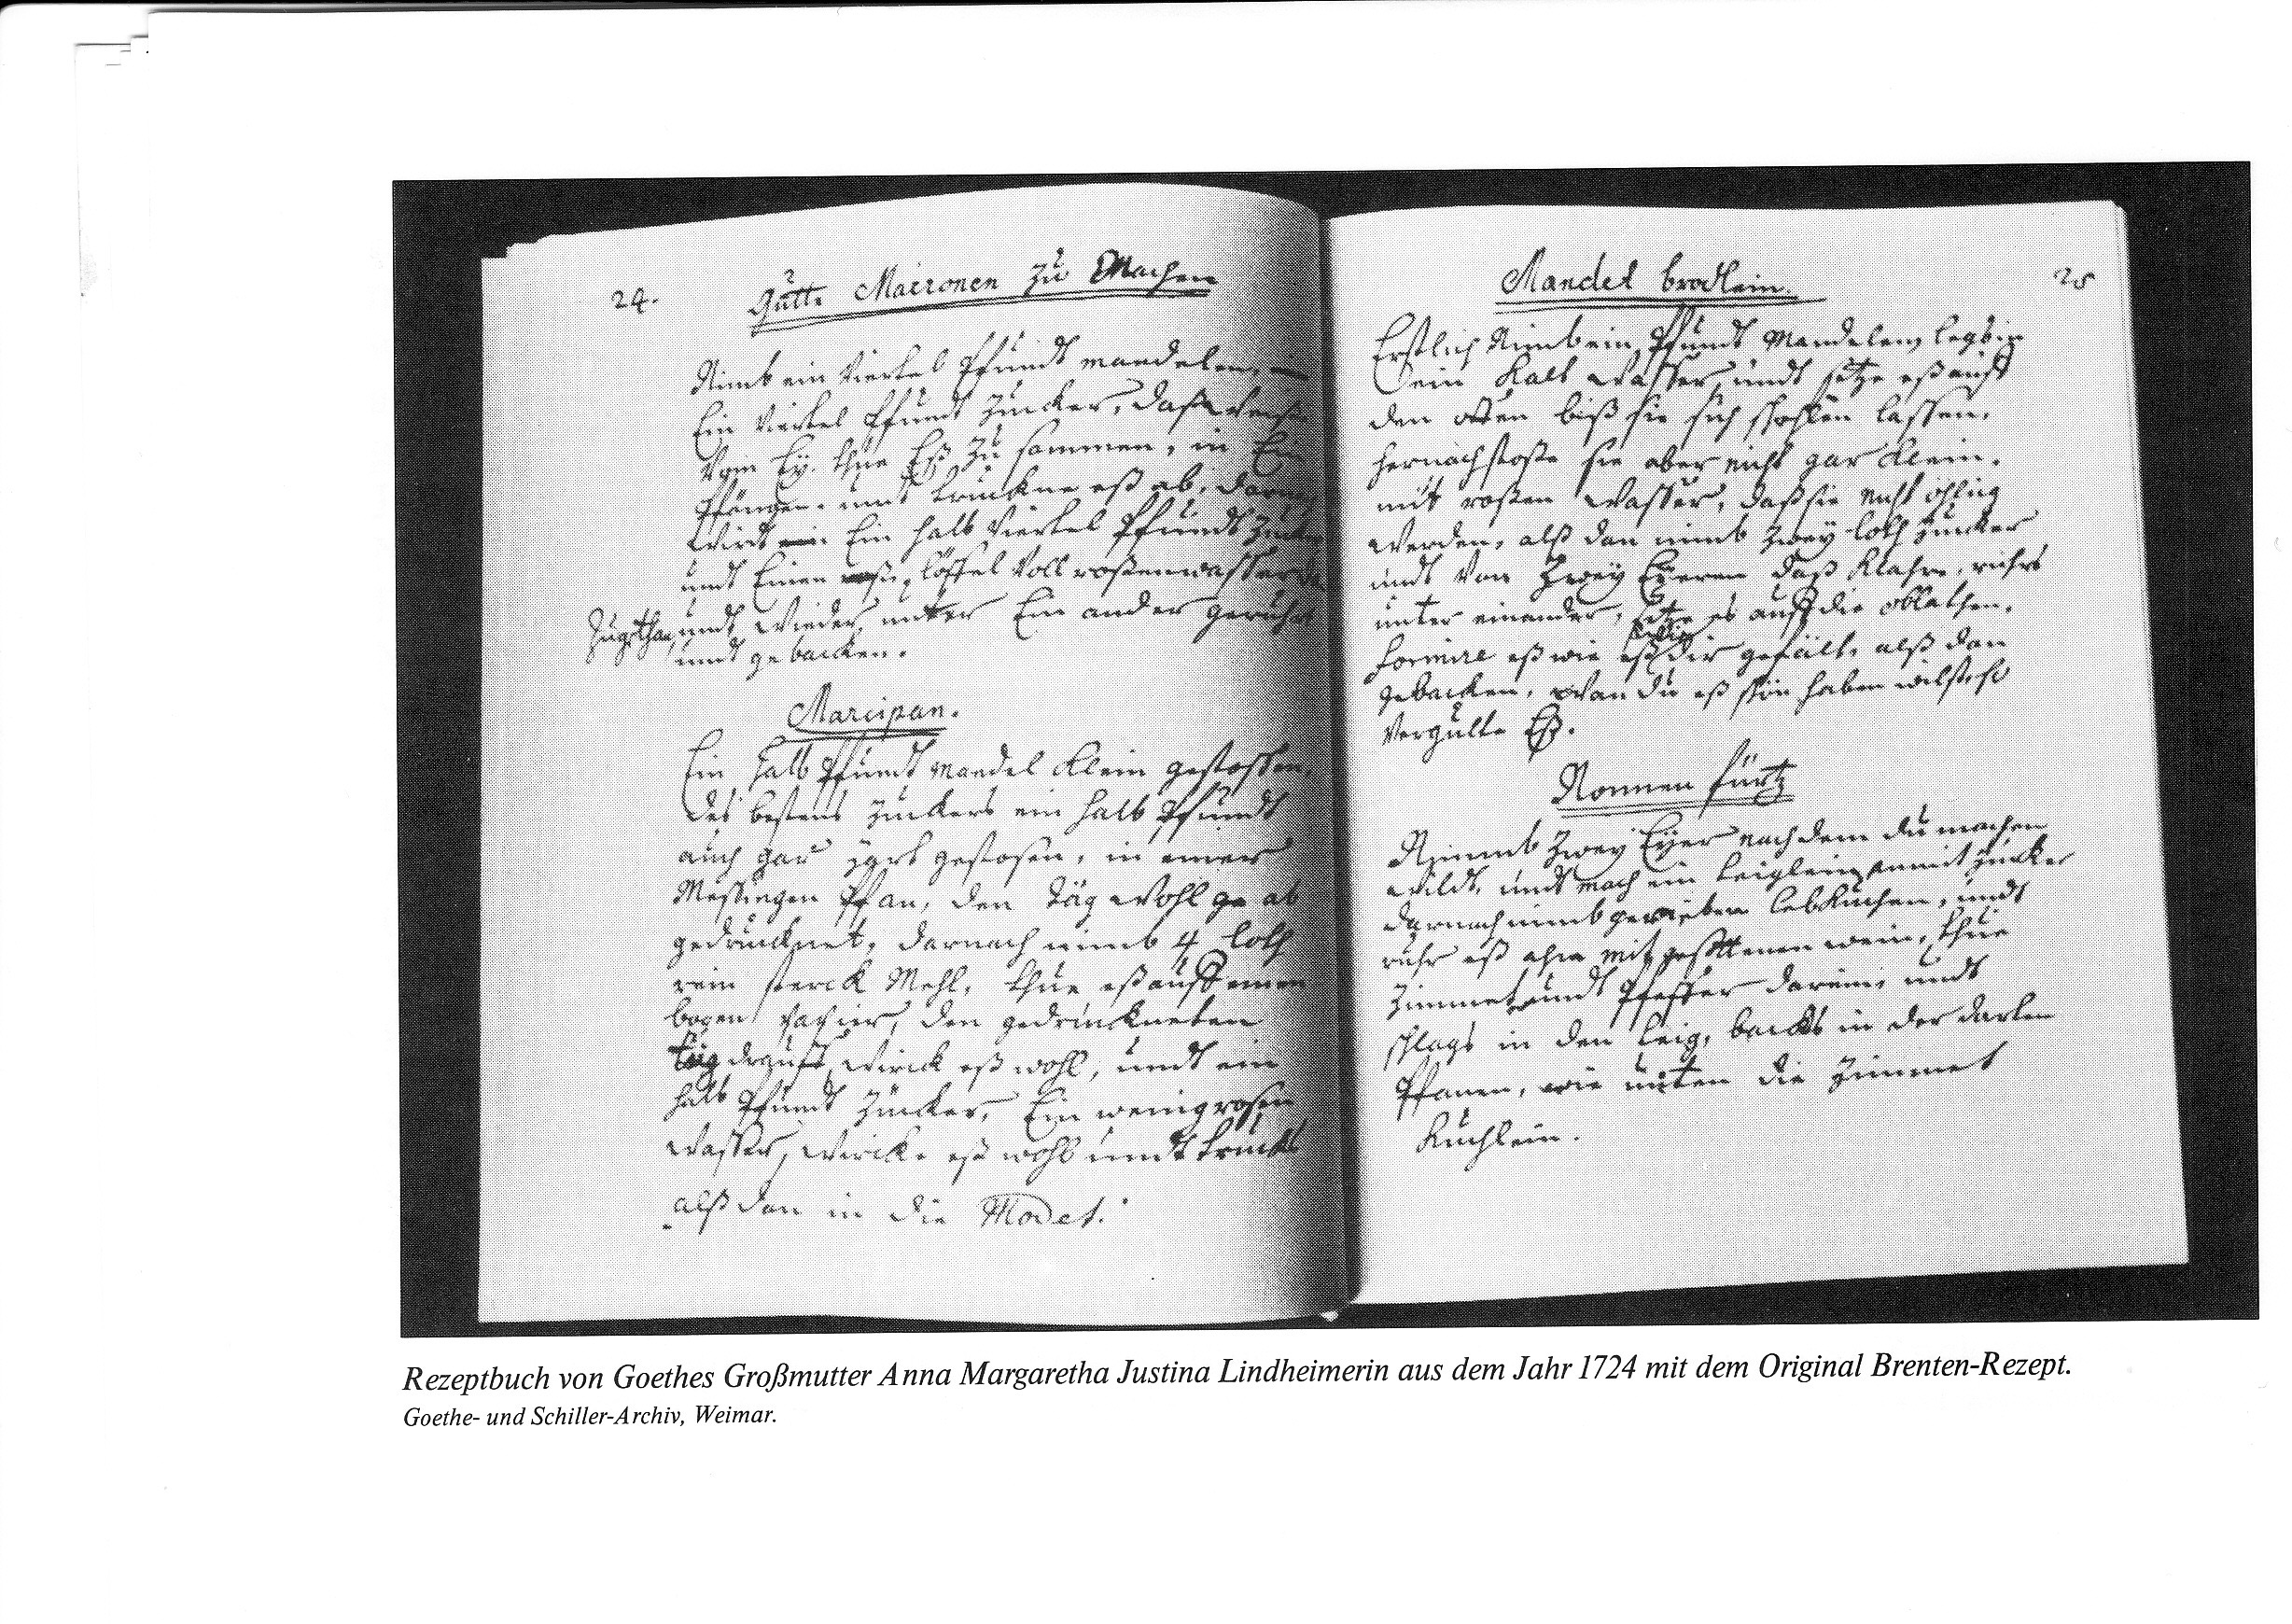 24.
Gutte Macronen zu Machen
Nimb ein Viertel Pfundt mandelen,
Ein Viertel Pfundt Zucker, daß
Vom Ey. thue Eß zu sammen, in Ein
undt truckne eß ab,
wirdt Ein halb Viertel Pfundt Zucker
undt Einen löffel Voll roßenwasser
Zugethan, undt wieder unter Ein ander gerührt
undt gebacken.
Marcipan.
Ein halb Pfundt Mandel klein gestossen,
des bestens Zuckers ein halb Pfundt
auch gar zart gestosen, in einer
Messingen Pfan, den Täg wohl ab
gedrucknet, darnach nimb 4 loth
rein sterck Mehl, thue eß auff einen
bogen papier, den gedruckneten
Täg drauff, wirck eß wohl, undt ein
halb Pfundt Zucker, Ein wenig rosen
wasser, wircke eß wohl undt truckts
alß dan in die Model.
Mandel brodlein.
25
Erstlich Nimb ein Pfundt Mandelen, leg sie
ein kalt wasser, undt setze eß auff
den offen biß sie sich schohlen lassen,
hernach stoße sie aber nicht gar klein,
mit roßen wasser, daß sie nicht öhlig
werden, alß dan nimb zwey loth Zucker
undt von Zwey Eyeren daß klahre, rührs
unter einander, setze es auff die oblathen,
formire eß wie eß dir gefält, alß dan
gebacken, wan du eß schön haben wilst, so
Vergulte Eß.
Nonnen fürtz
Nimmb Zwey Eyer nach dem du machen
wildt, undt mach ein teiglein mit Zucker
darnach nimb gerieben lebkuchen, undt
rühr eß ahn mit gesottenen wein, thue
Zimmet undt Pfeffer darein, undt
schlags in den teig, backs in der darten
Pfanen, wie unten die Zimmet
Kuchlein.
Rezeptbuch von Goethes Großmutter Anna Margaretha Justina Lindheimerin aus dem Jahr 1724 mit dem Original Brenten-Rezept.
Goethe- und Schiller-Archiv, Weimar.